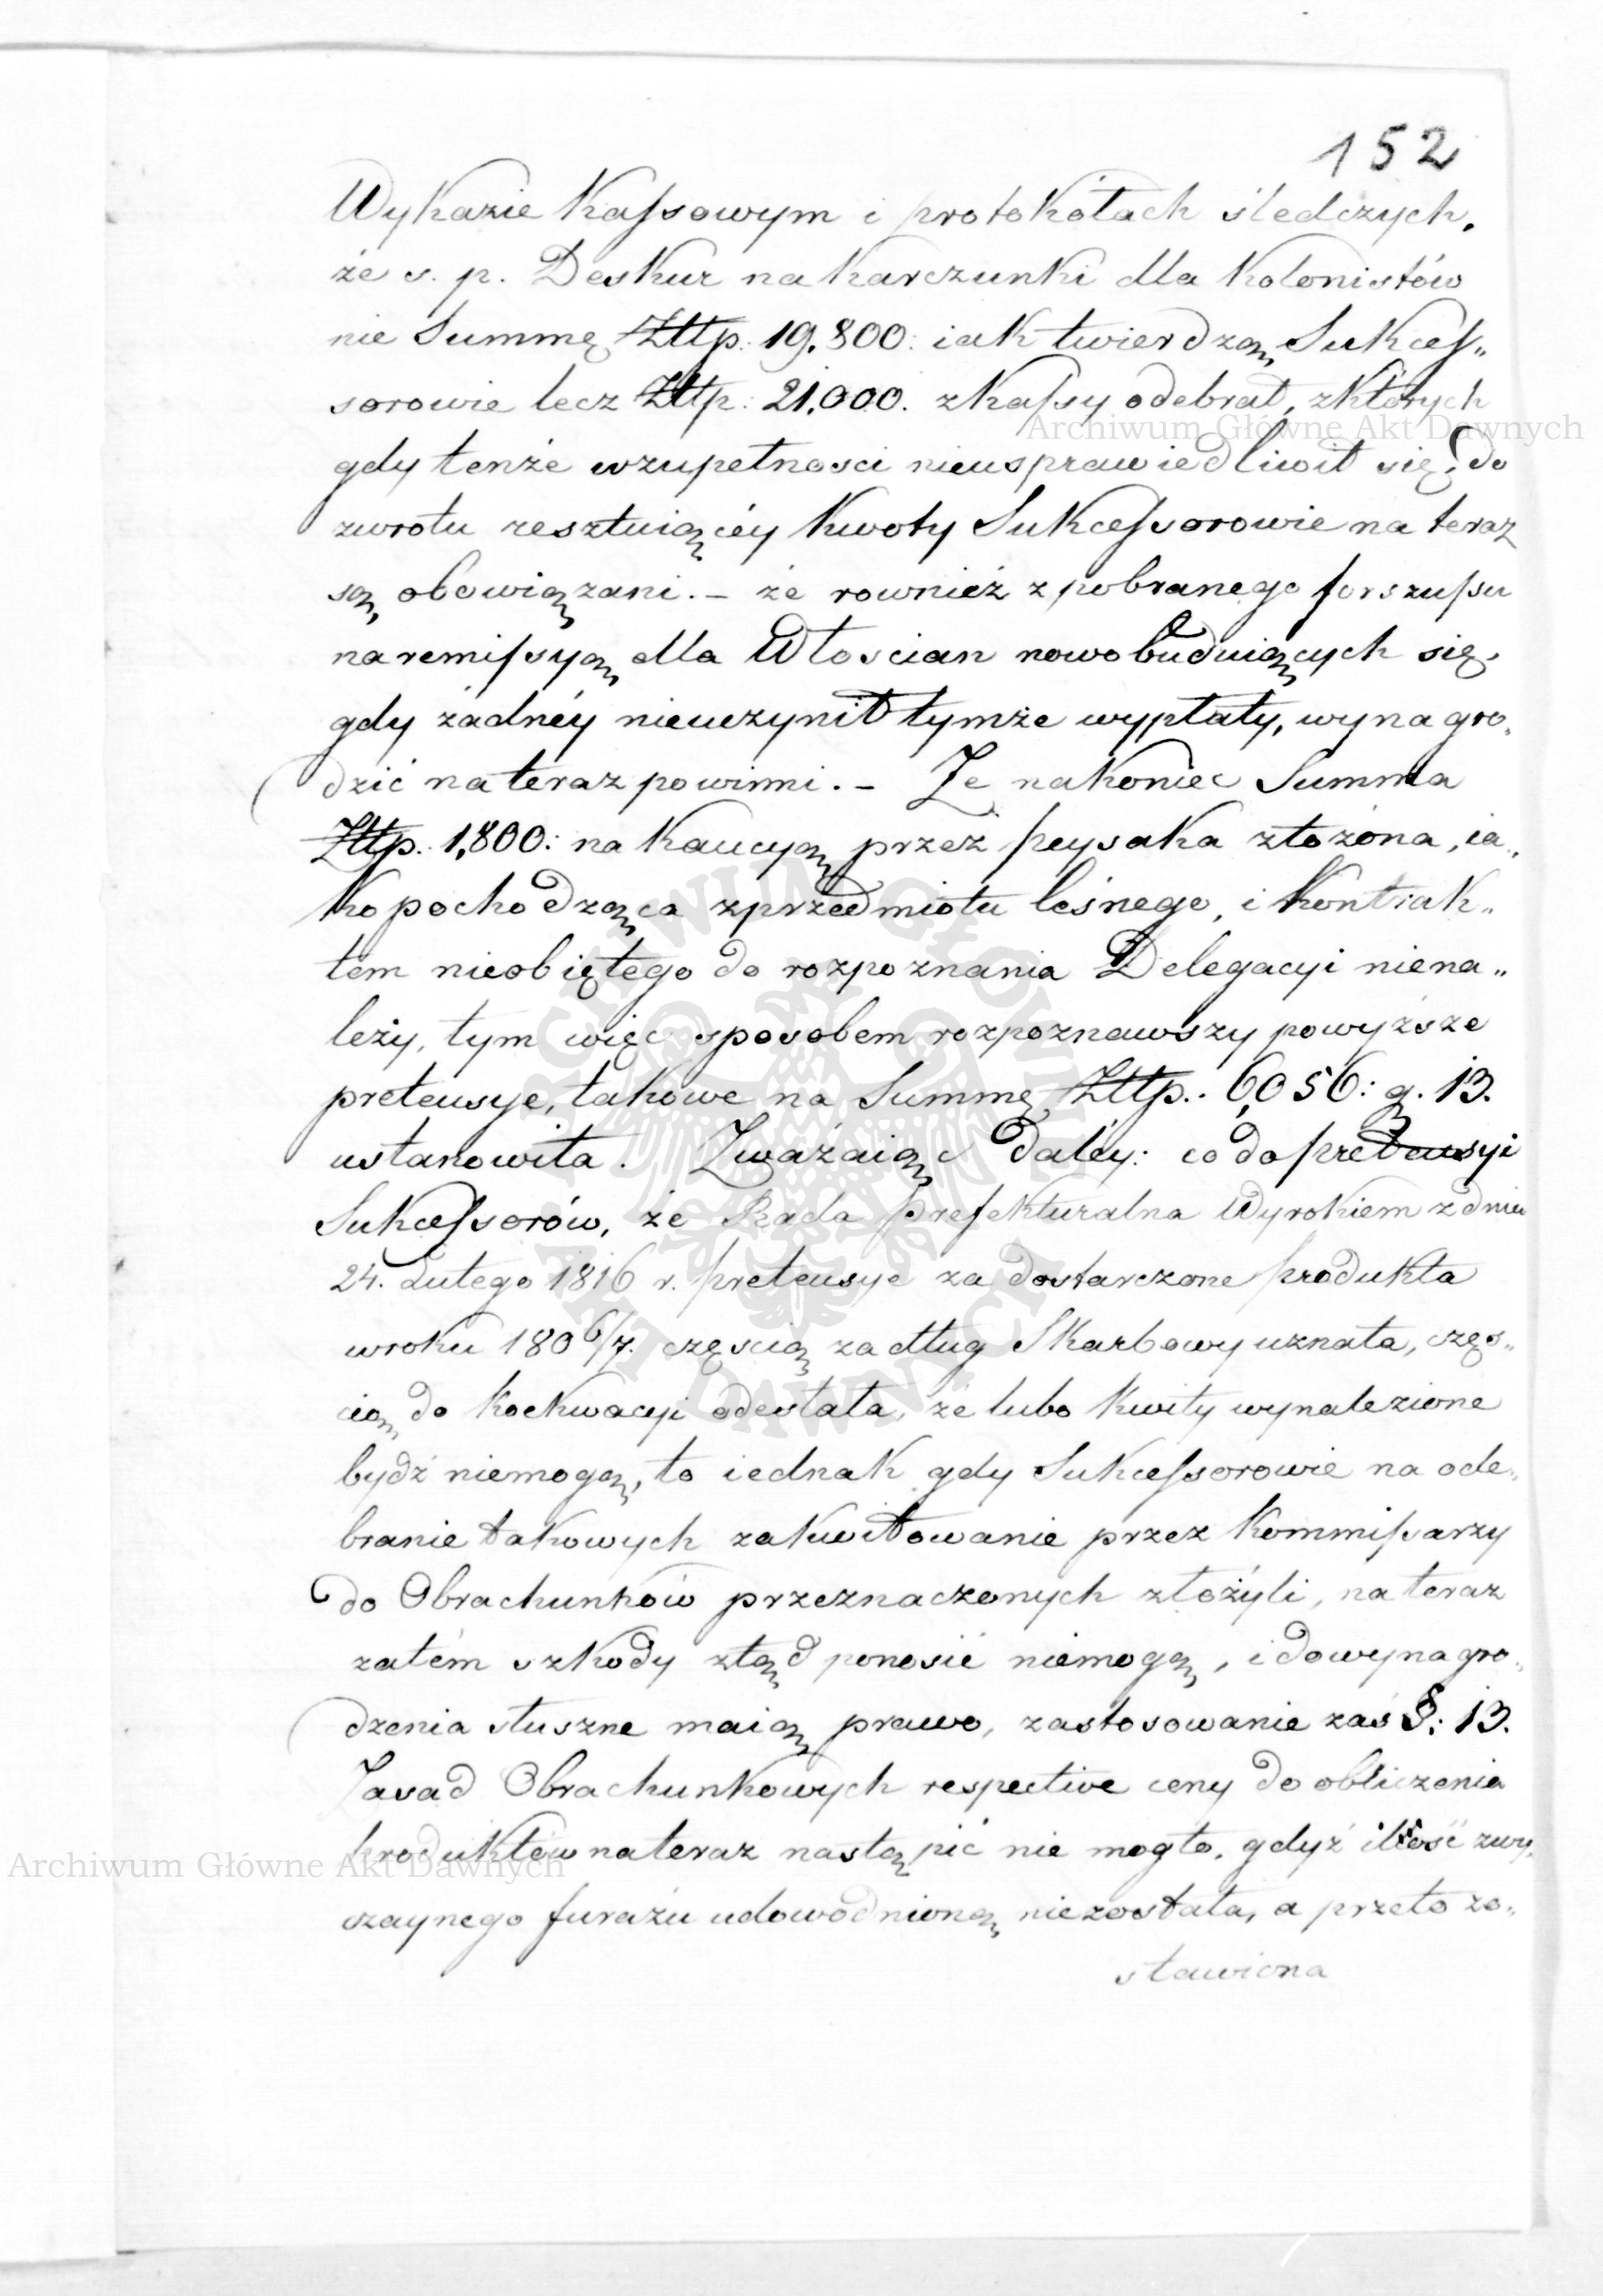 152
Wykazie Kassowym i protokółach śledczych,
że s. p. Deskur na karczunki dla kolonistów
nie Summę Złtp. 19,800: iak twierdzą Sukces„
sorowie lecz Złtp: 21,000. z kassy odebrał, z których
gdy tenże w zupełnosci nieusprawiedliwił się, do
zwrotu resztuiącéy kwoty Sukcessorowie na teraz
są obowiązani. – że rownież z pobranego forszussu
na remissyą dla Włoscian nowo buduiących się,
gdy żadnéy nieuczynił tymże wypłaty, wynagro„
dzić na teraz powinni. – Że nakoniec Summa
Złtp. 1,800: na kaucyą przez Peysaka złożona, ia„
ko pochodząca z przedmiotu leśnego, i kontrak„
tem nieobiętego do rozpoznania Delegacyi niena„
leży, tym więc sposobem rozpoznawszy powyższe
pretensye, takowe na Summę Złtp. 6,056: g. 13.
ustanowiła. Zważaiąc daléy: co do pretensyi
Sukcessorów, że Rada Prefekturalna Wyrokiem z dniu
24. Lutego 1816 r. pretensye za dostarczone produkta
w roku 1806/7. częscią za dług Skarbowy uznała, częs„
cią do koekwacyi odesłała, że lubo kwity wynalezione
bydź niemogą, to iednak gdy Sukcessorowie na ode„
branie takowych zakwitowanie przez Kommissarzy
do Obrachunków przeznaczonych złożyli, na teraz
zatém szkody ztąd ponosić niemogą, i do wynagro„
dzenia słuszne maią prawo, zastosowanie zaś §: 13.
Zasad Obrachunkowych respective ceny do obliczenia
produktów na teraz nastąpić nie mogło, gdyż ilość zwy„
czaynego furażu udowodnioną niezostała, a przeto zo„
stawiona
Archiwum Główne Akt Dawnych
Archiwum Główne Akt Dawnych
ARCHIWUM GŁÓWNE
AKT DAWNYCH